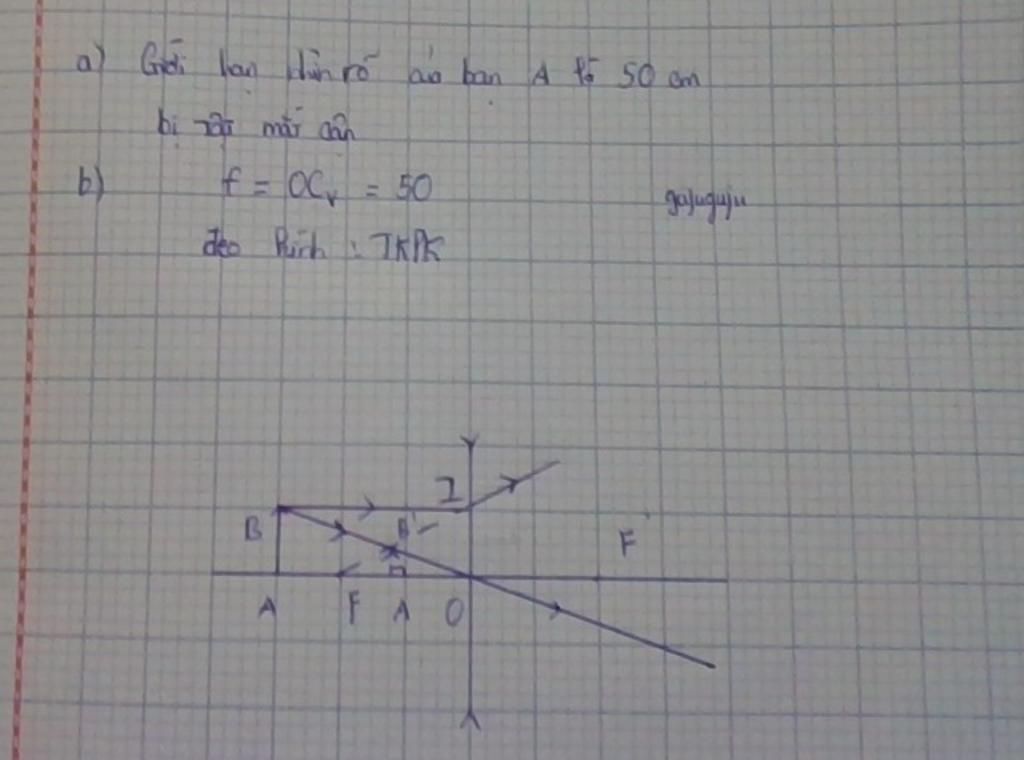 a) Giới hạn nhìn rõ của bạn A là 50 cm
bị tật mắt cận
b) f = OCv = 50
gajugaju
đeo kính : TKPK
I
B B'
F'
A F A O